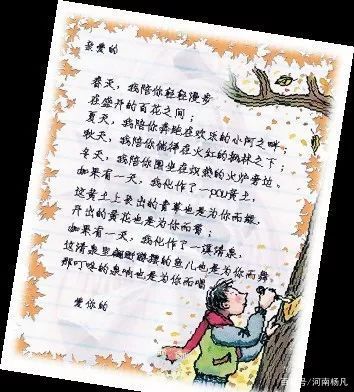 亲爱的
春天，我陪你轻轻漫步
在盛开的百花之间；
夏天，我陪你奔跑在欢乐的小河之畔；
秋天，我陪你徜徉在火红的枫林之下；
冬天，我陪你围坐在炽热的火炉旁边。
如果有一天，我化作了一pou黄土，
这黄土上长出的青草也是为你而绿，
开出的黄花也是为你而香；
如果有一天，我化作了一潭清泉，
这清泉里翩跹的鱼儿也是为你而舞，
那叮咚的泉响也是为你而唱
爱你的
百家号/河南杨凡